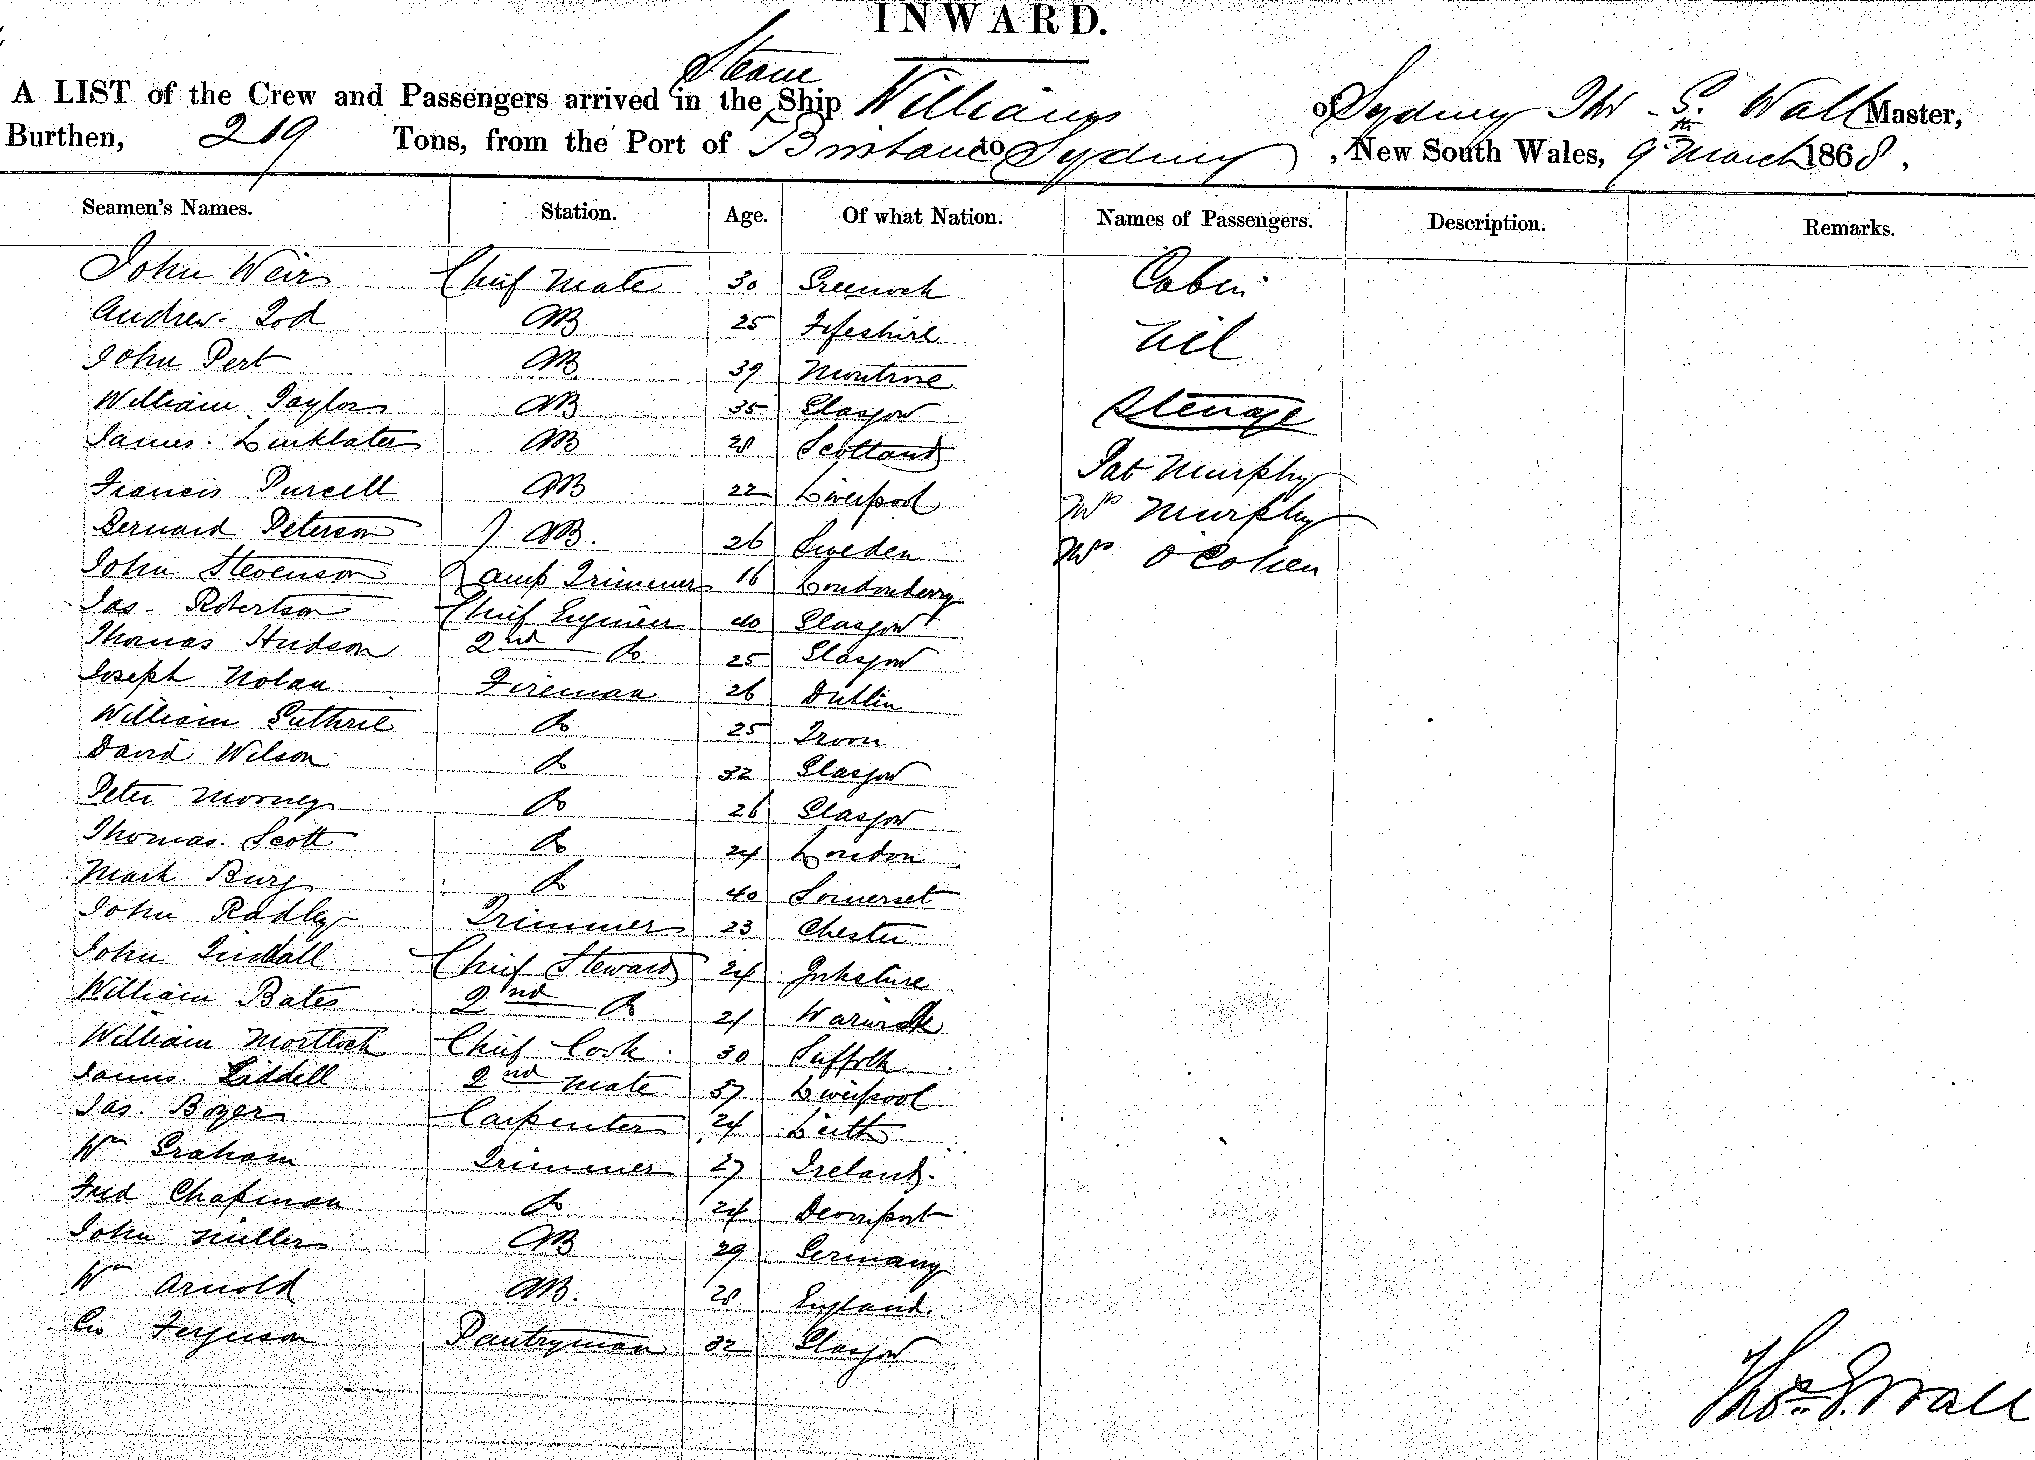 INWARD.
Steam
A LIST of the Crew and Passengers arrived in the Ship Williams of Sydney Thos S. Wall Master,
Burthen, 219 Tons, from the Port of Brisbane to Sydney, New South Wales, 9th March 1868.
Seamen's Names. Station. Age. Of what Nation. Names of Passengers. Description. Remarks.
John Weir Chief Mate 30 Greenock Cabin
Andrew Tod AB 25 Fifeshire Nil
John Pert AB 39 Montrose
William Taylor AB 35 Glasgow Steerage
James Linklater AB 28 Scotland
Francis Purcell AB 22 Liverpool Pat Murphy
Bernard Peterson AB. 26 Sweden Mrs Murphy
John Stevenson Lamp Trimmer 16 Londonderry Mrs O'Cohen
Jas. Robertson Chief Engineer 40 Glasgow
Thomas Hudson 2nd Do 25 Glasgow
Joseph Nolan Fireman 26 Dublin
William Guthrie Do 25 Troon
David Wilson Do 32 Glasgow
Peter Mooney Do 26 Glasgow
Thomas Scott Do 24 London
Mark Burg Do 40 Somerset
John Radley Trimmer 23 Chester
John Tindall Chief Steward 24 Yorkshire
William Bates 2nd Do 21 Warwick
William Mortlock Chief Cook 30 Suffolk
James Liddell 2nd Mate 37 Liverpool
Jas. Boyer Carpenter 24 Leith
Wm Graham Trimmer 27 Ireland.
Fred Chapman Do 24 Devonport
John Miller AB 29 Germany
Wm Arnold AB. 28 England.
Geo Ferguson Pantryman 32 Glasgow
Thos S. Wall